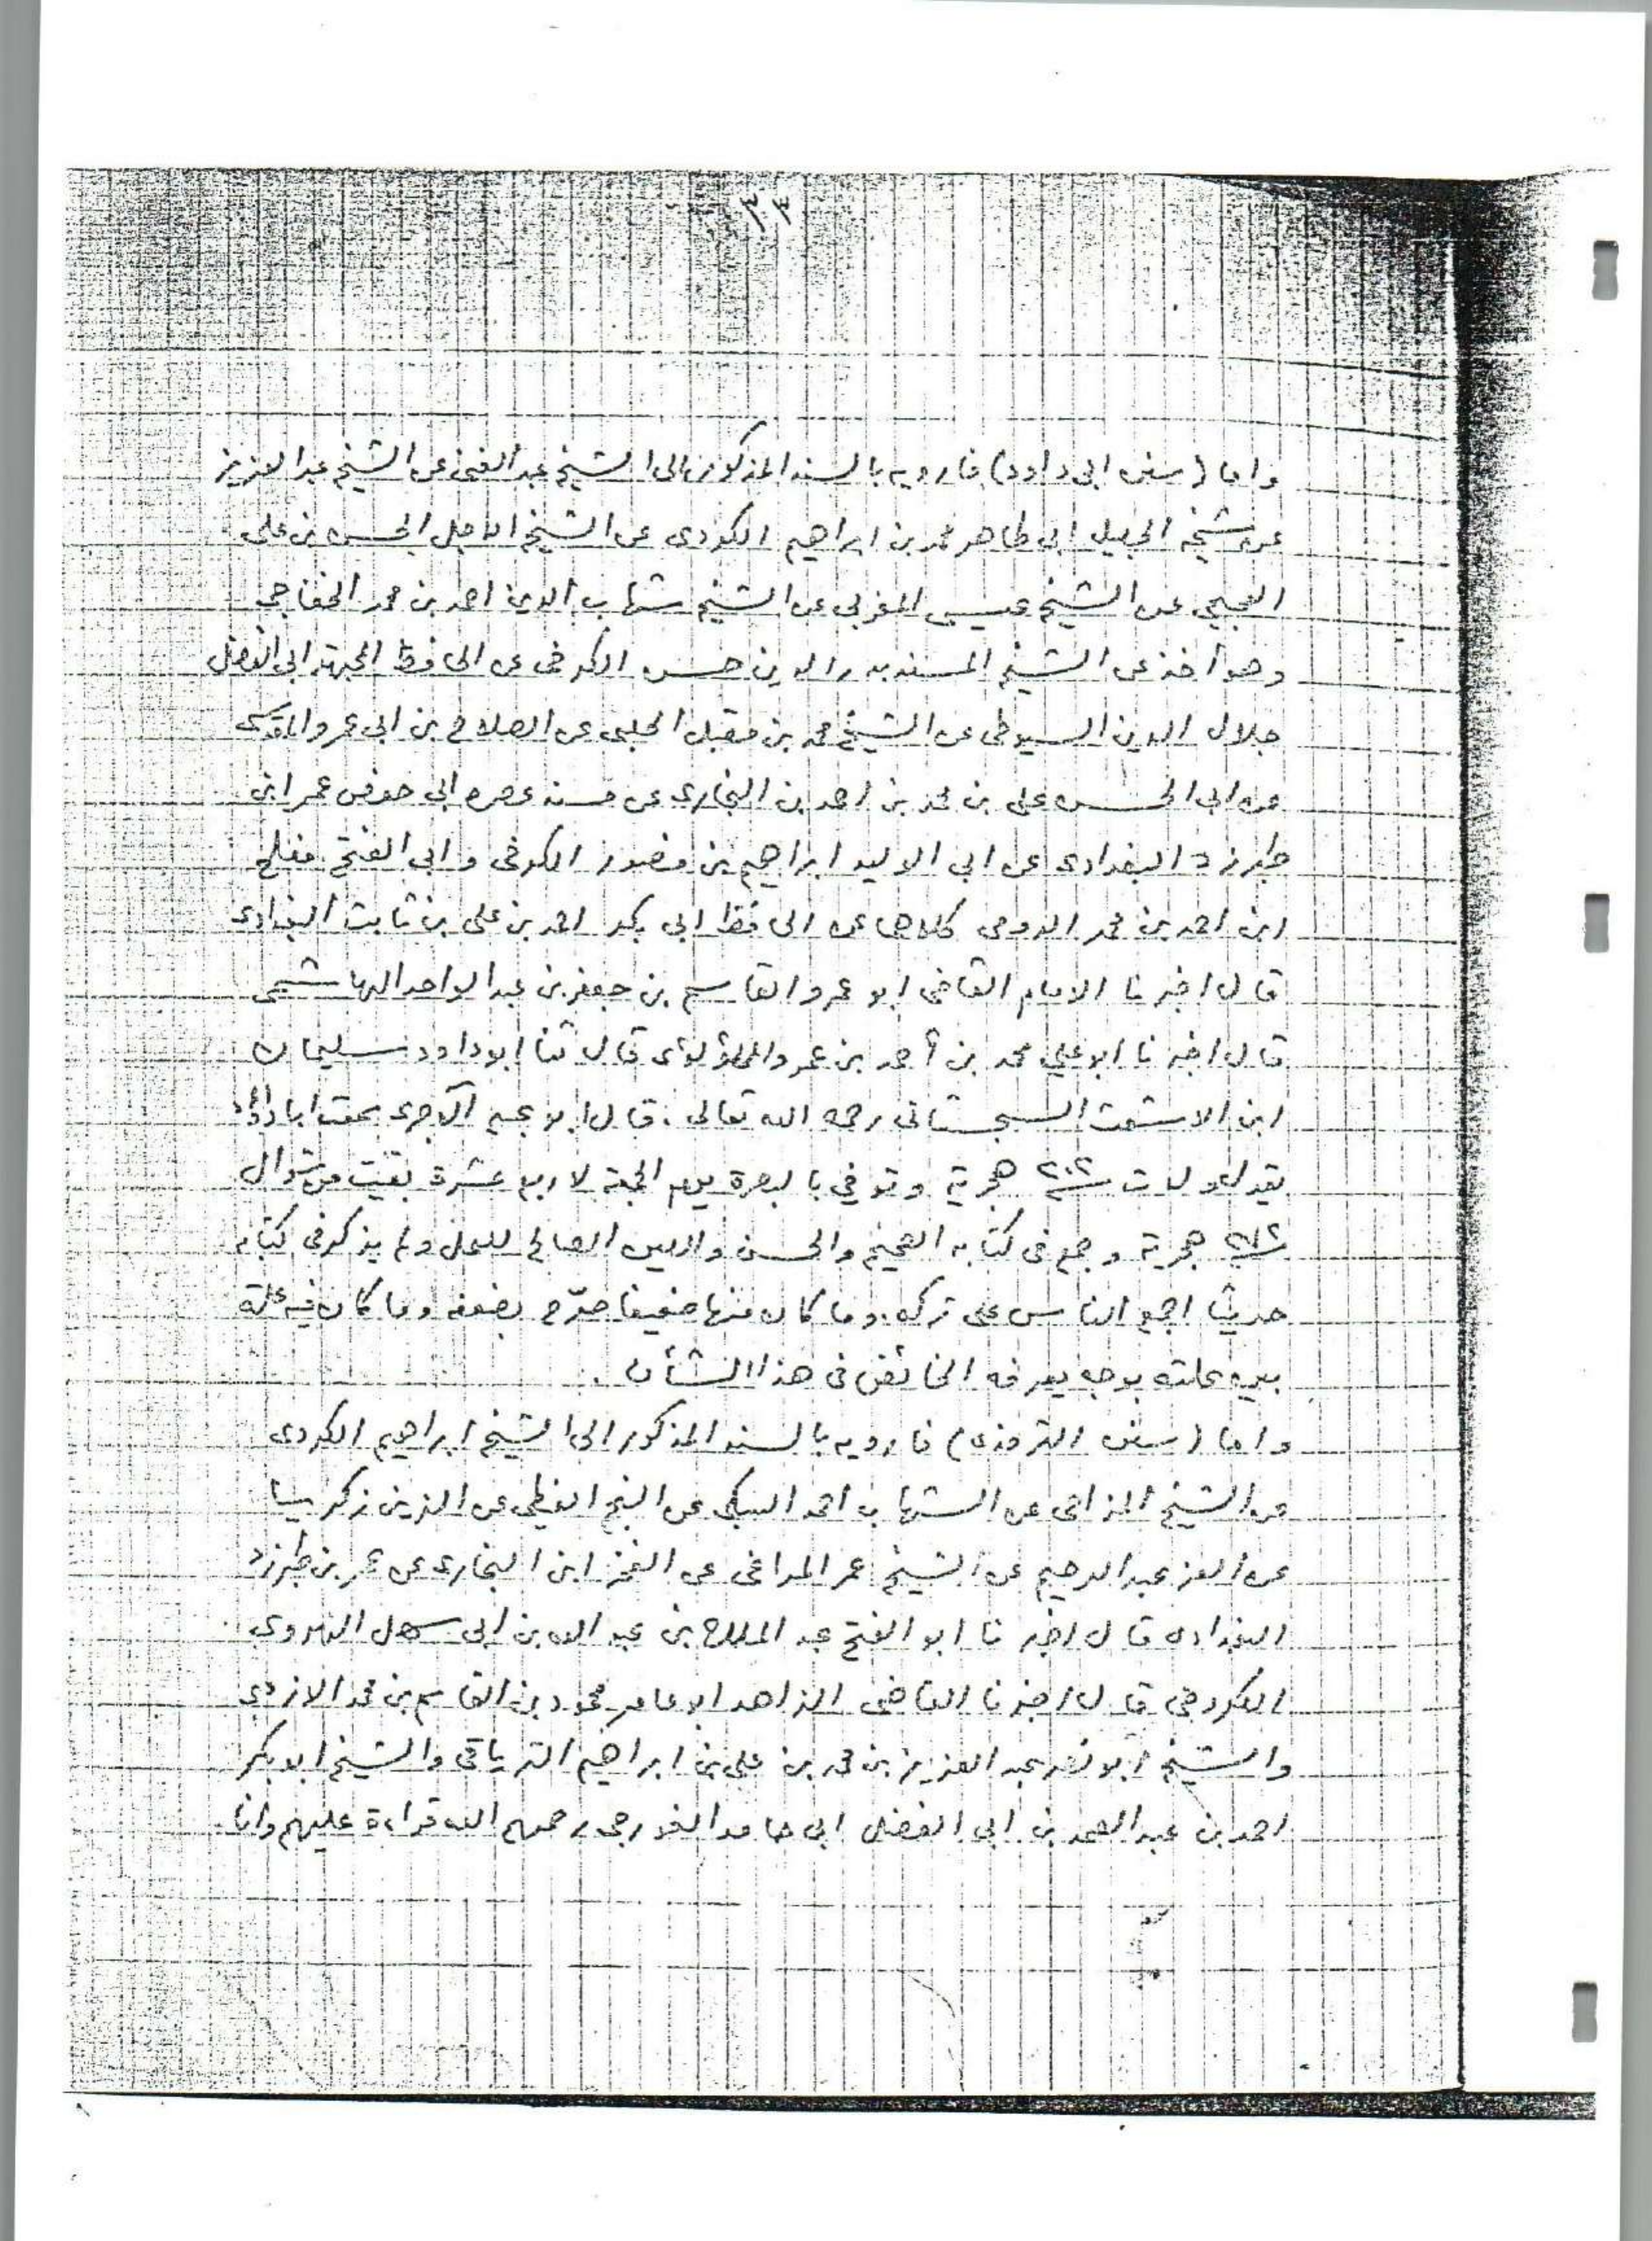 ٤٤
واما (سنن ابى داود) فارويه بالسند المذكور الى الشيخ عبد الغنى عن الشيخ عبد العزيز
عن شيخه الجليل ابى طاهر محمد بن ابراهيم الكوردى عن الشيخ الاجل الحسن بن على
العجيمى عن الشيخ عيسى المغربى عن الشيخ شهاب الدين احمد بن محمد الخفاجى
وهو أخذ عن الشيخ المسند بدر الدين حسن الكرخى عن الحافظ المجتهد ابى الفضل
جلال الدين السيوطى عن الشيخ محمد بن مقبل الحلبى عن الصلاح بن ابى عمرو المقدسى
عن ابى الحسن على بن محمد بن احمد بن البخارى عن مسند عصره ابى حفص عمر ابن
طبرزد البغدادى عن ابى الوليد ابراهيم بن منصور الكرخى و ابى الفتح مفلح
ابن احمد بن محمد الدومى كلاهما عن الحافظ ابى بكر احمد بن على بن ثابت البغدادى
قال اخبرنا الامام القاضى ابو عمرو القاسم بن جعفر بن عبد الواحد الهاشمى
قال اخبرنا ابو علي محمد بن أحمد بن عمرو اللؤلؤى قال ثنا ابو داود سليمان
ابن الاشعث السجستانى رحمه الله تعالى . قال ابو عبيد الآجرى سمعت ابا داؤد
يقول ولدت ٢٠٢ هجرية وتوفي بالبصرة يوم الجمعة لاربع عشرة بقيت من شوال
هجرية وجمع فى كتابه الصحيح والحسن والليين الصالح للعمل ولم يذكر فى كتابه
حديثا اجمع الناس على تركه. وما كان منها ضعيفا صرّح بضعفه وما كان فيه علة
بين علته بوجه يعرفه الخائض فى هذا الشأن .
واما (سنن الترمذى) فارويه بالسند المذكور الى الشيخ ابراهيم الكردى
عن الشيخ المزاحى عن الشهاب احمد السبكى عن النجم الغيطى عن الزين زكريا
عن العز عبد الرحيم عن الشيخ عمر المراغى عن الفخر ابن البخارى عن عمر بن طبرزد
البغدادى قال اخبرنا ابو الفتح عبد الملك بن عبد الله بن ابى سهل الهروى
الكروخى قال اخبرنا القاضى الزاهد ابو عامر محمود بن القاسم بن محمد الازدى
والشيخ ابو نصر عبد العزيز بن محمد بن على بن ابراهيم الترياقى والشيخ ابو بكر
احمد بن عبد الصمد بن ابى الفضل ابى حامد الغورجى رحمهم الله قراءة عليهم وانا